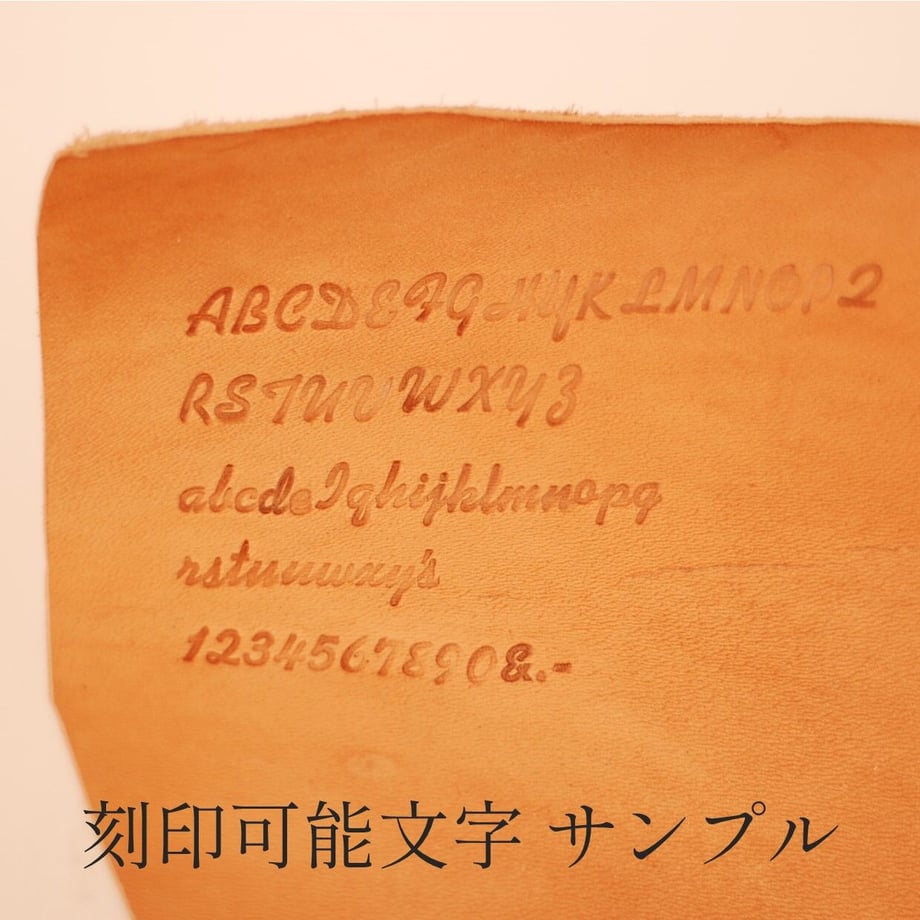 ABCDEFGHIJKLMNOPQ
RSTUVWXYZ
abcdefghijklmnopq
rstuvwxyz
1234567890&.-
刻印可能文字 サンプル